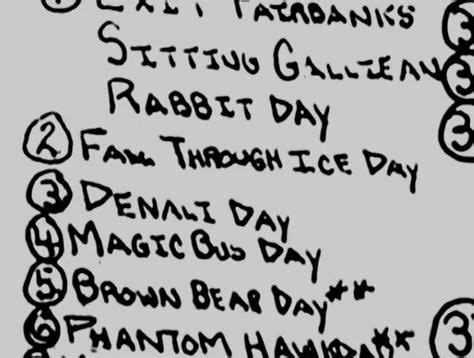 ① EXIT FAIRBANKS ③
SITTING GALLIEAN ③
RABBIT DAY ③
② FALL THROUGH ICE DAY
③ DENALI DAY
④ MAGIC BUS DAY
⑤ BROWN BEAR DAY**
⑥ PHANTOM ** ③